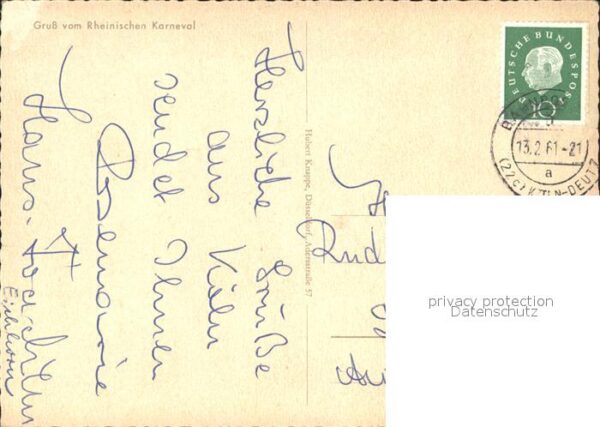 Gruß vom Rheinischen Karneval
Herzliche Grüße
aus Köln
sendet Ihnen
Rosemarie
Hans-Joachim
Hubert Knuppe, Düsseldorf, Adersstraße 57
DEUTSCHE BUNDESPOST
10
13.2.61-21
a
(22c) KÖLN-DEUTZ
privacy protection
Datenschutz